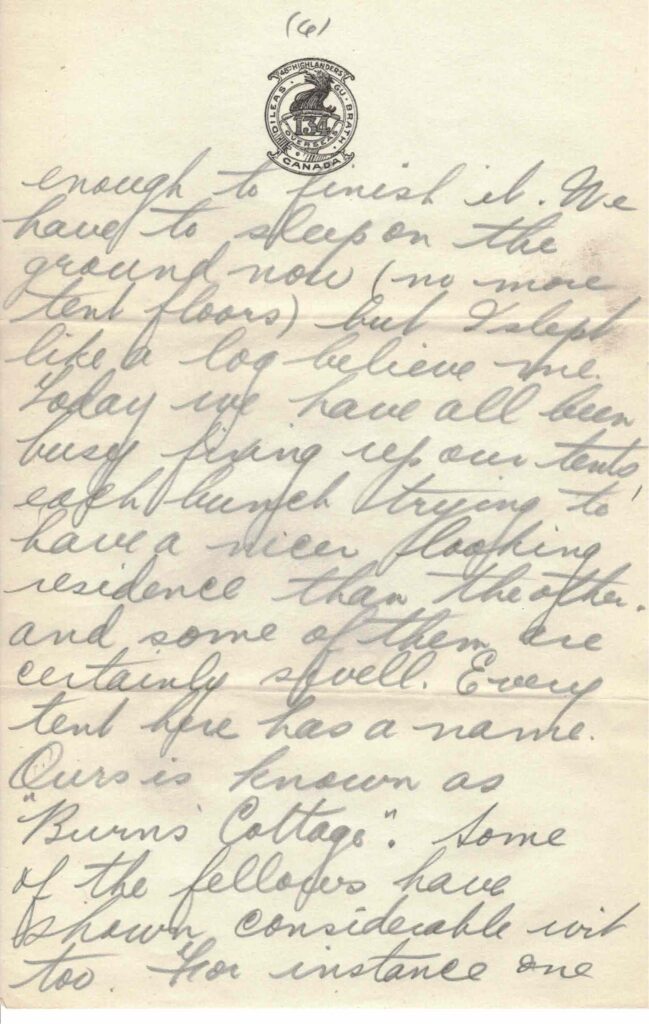 (6)
48TH HIGHLANDERS
DILEAS GU BRATH
134
OVERSEAS
CANADA
enough to finish it. We
have to sleep on the
ground now (no more
tent floors) but I slept
like a log believe me.
Today we have all been
busy fixing up our tents
each bunch trying to
have a nicer looking
residence than the other.
and some of them are
certainly swell. Every
tent here has a name.
Ours is known as
"Burns' Cottage". Some
of the fellows have
shown considerable wit
too. For instance one